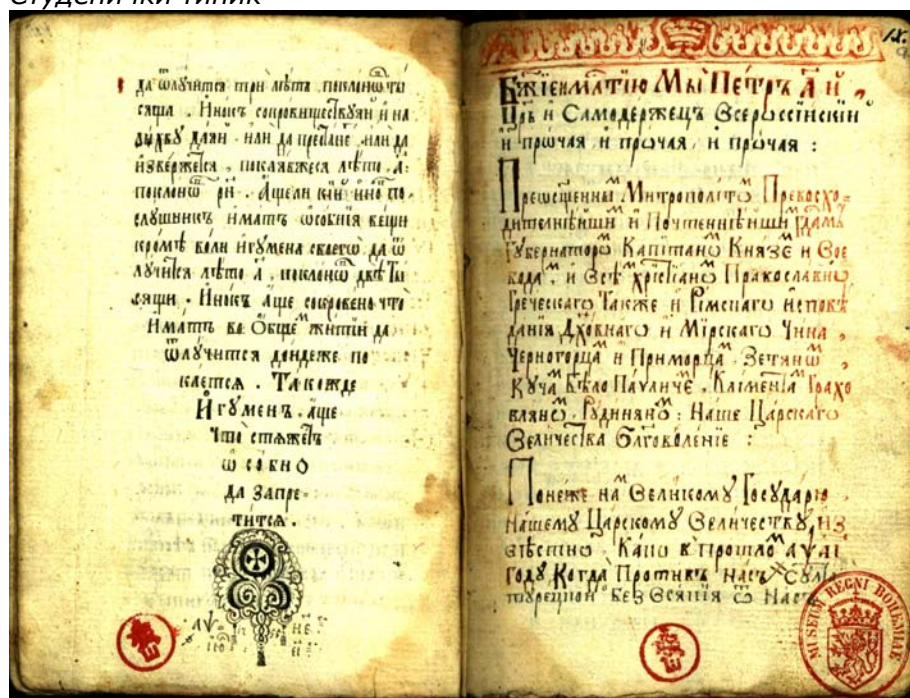 Студенички типик
да ѿлꙋчитсѧ три лѣта поклонѡ̅ ты
сѧща . Инокъ сокровиществꙋѧи и на
лихвꙋ даѧи . или да престане или да
извержетсѧ , покаѧвжесѧ лѣто . а҃ .
поклонѡ̅ рн҃ . Аще ли кїи ино по-
слꙋшникъ имать ѡсобнїѧ вещи
кромѣ воли игꙋмена своегѡ да ѿ
лꙋчитсѧ лѣто а҃ , поклонѡ двѣ ты
сѧщи . Инокъ Аще сокровено что
имать во Обще житїи да
ѿлꙋчитсѧ дондеже по
каетсѧ . Такожде
Игꙋменъ . аще
что стѧжетъ
ѡсобно
да запре-
титсѧ .
IX.
Бж҃їею мл҃тїю Мы Петръ А҃ й
Цр҃ь и Самодержецъ Всерѡссїискїй
и прѡчаѧ и прѡчаѧ , и прѡчаѧ :
Преѡсщ҃енны Митрополїтѡ Превосхо-
дителнѣйши и Почтеннѣйши Гдⷭ҇амъ
Гꙋбернаторѡ Капїтанѡ Кнѧзе и Вое
вода , и Всѣ хрїстїанѡ Православнѡ
Греческагѡ Также и Рїмскагѡ исповѣ
данїѧ Дх҃овнагѡ и Мїрскагѡ Чина ,
Черногорца и Приморца . Зетѧнѡ
Кꙋча Бѣло Паѵличе , Клїментїа Грахо
влѧнѡ , Рꙋдинѧнѡ : Наше Царскагѡ
Величества Благоволенїе :
Понеже на Великомꙋ Госꙋдарю
нашемꙋ Царскомꙋ Величествꙋ из
вѣстно , Какѡ в прошло аѱаі
годꙋ Когда Противъ насъ Сꙋлта
тꙋрецкой без всѧкїѧ ѿ Насъ
MUSEUM REGNI BOHEMIÆ